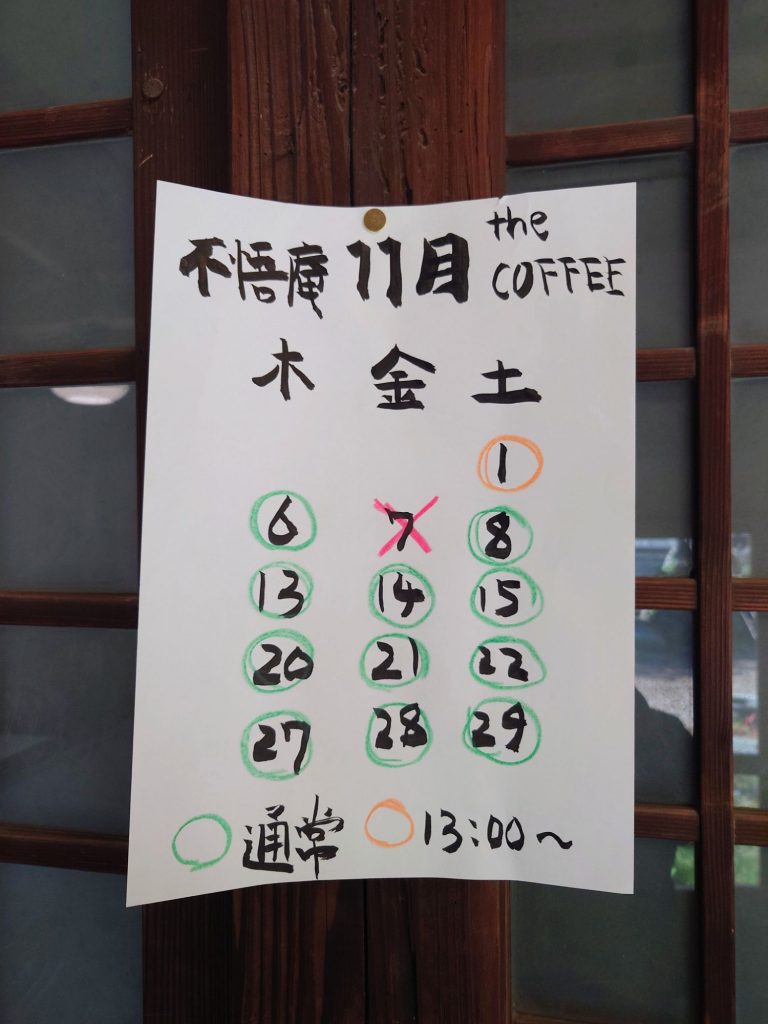 不悟庵 11月 the COFFEE
木 金 土
1
6 7 8
13 14 15
20 21 22
27 28 29
通常 13:00~